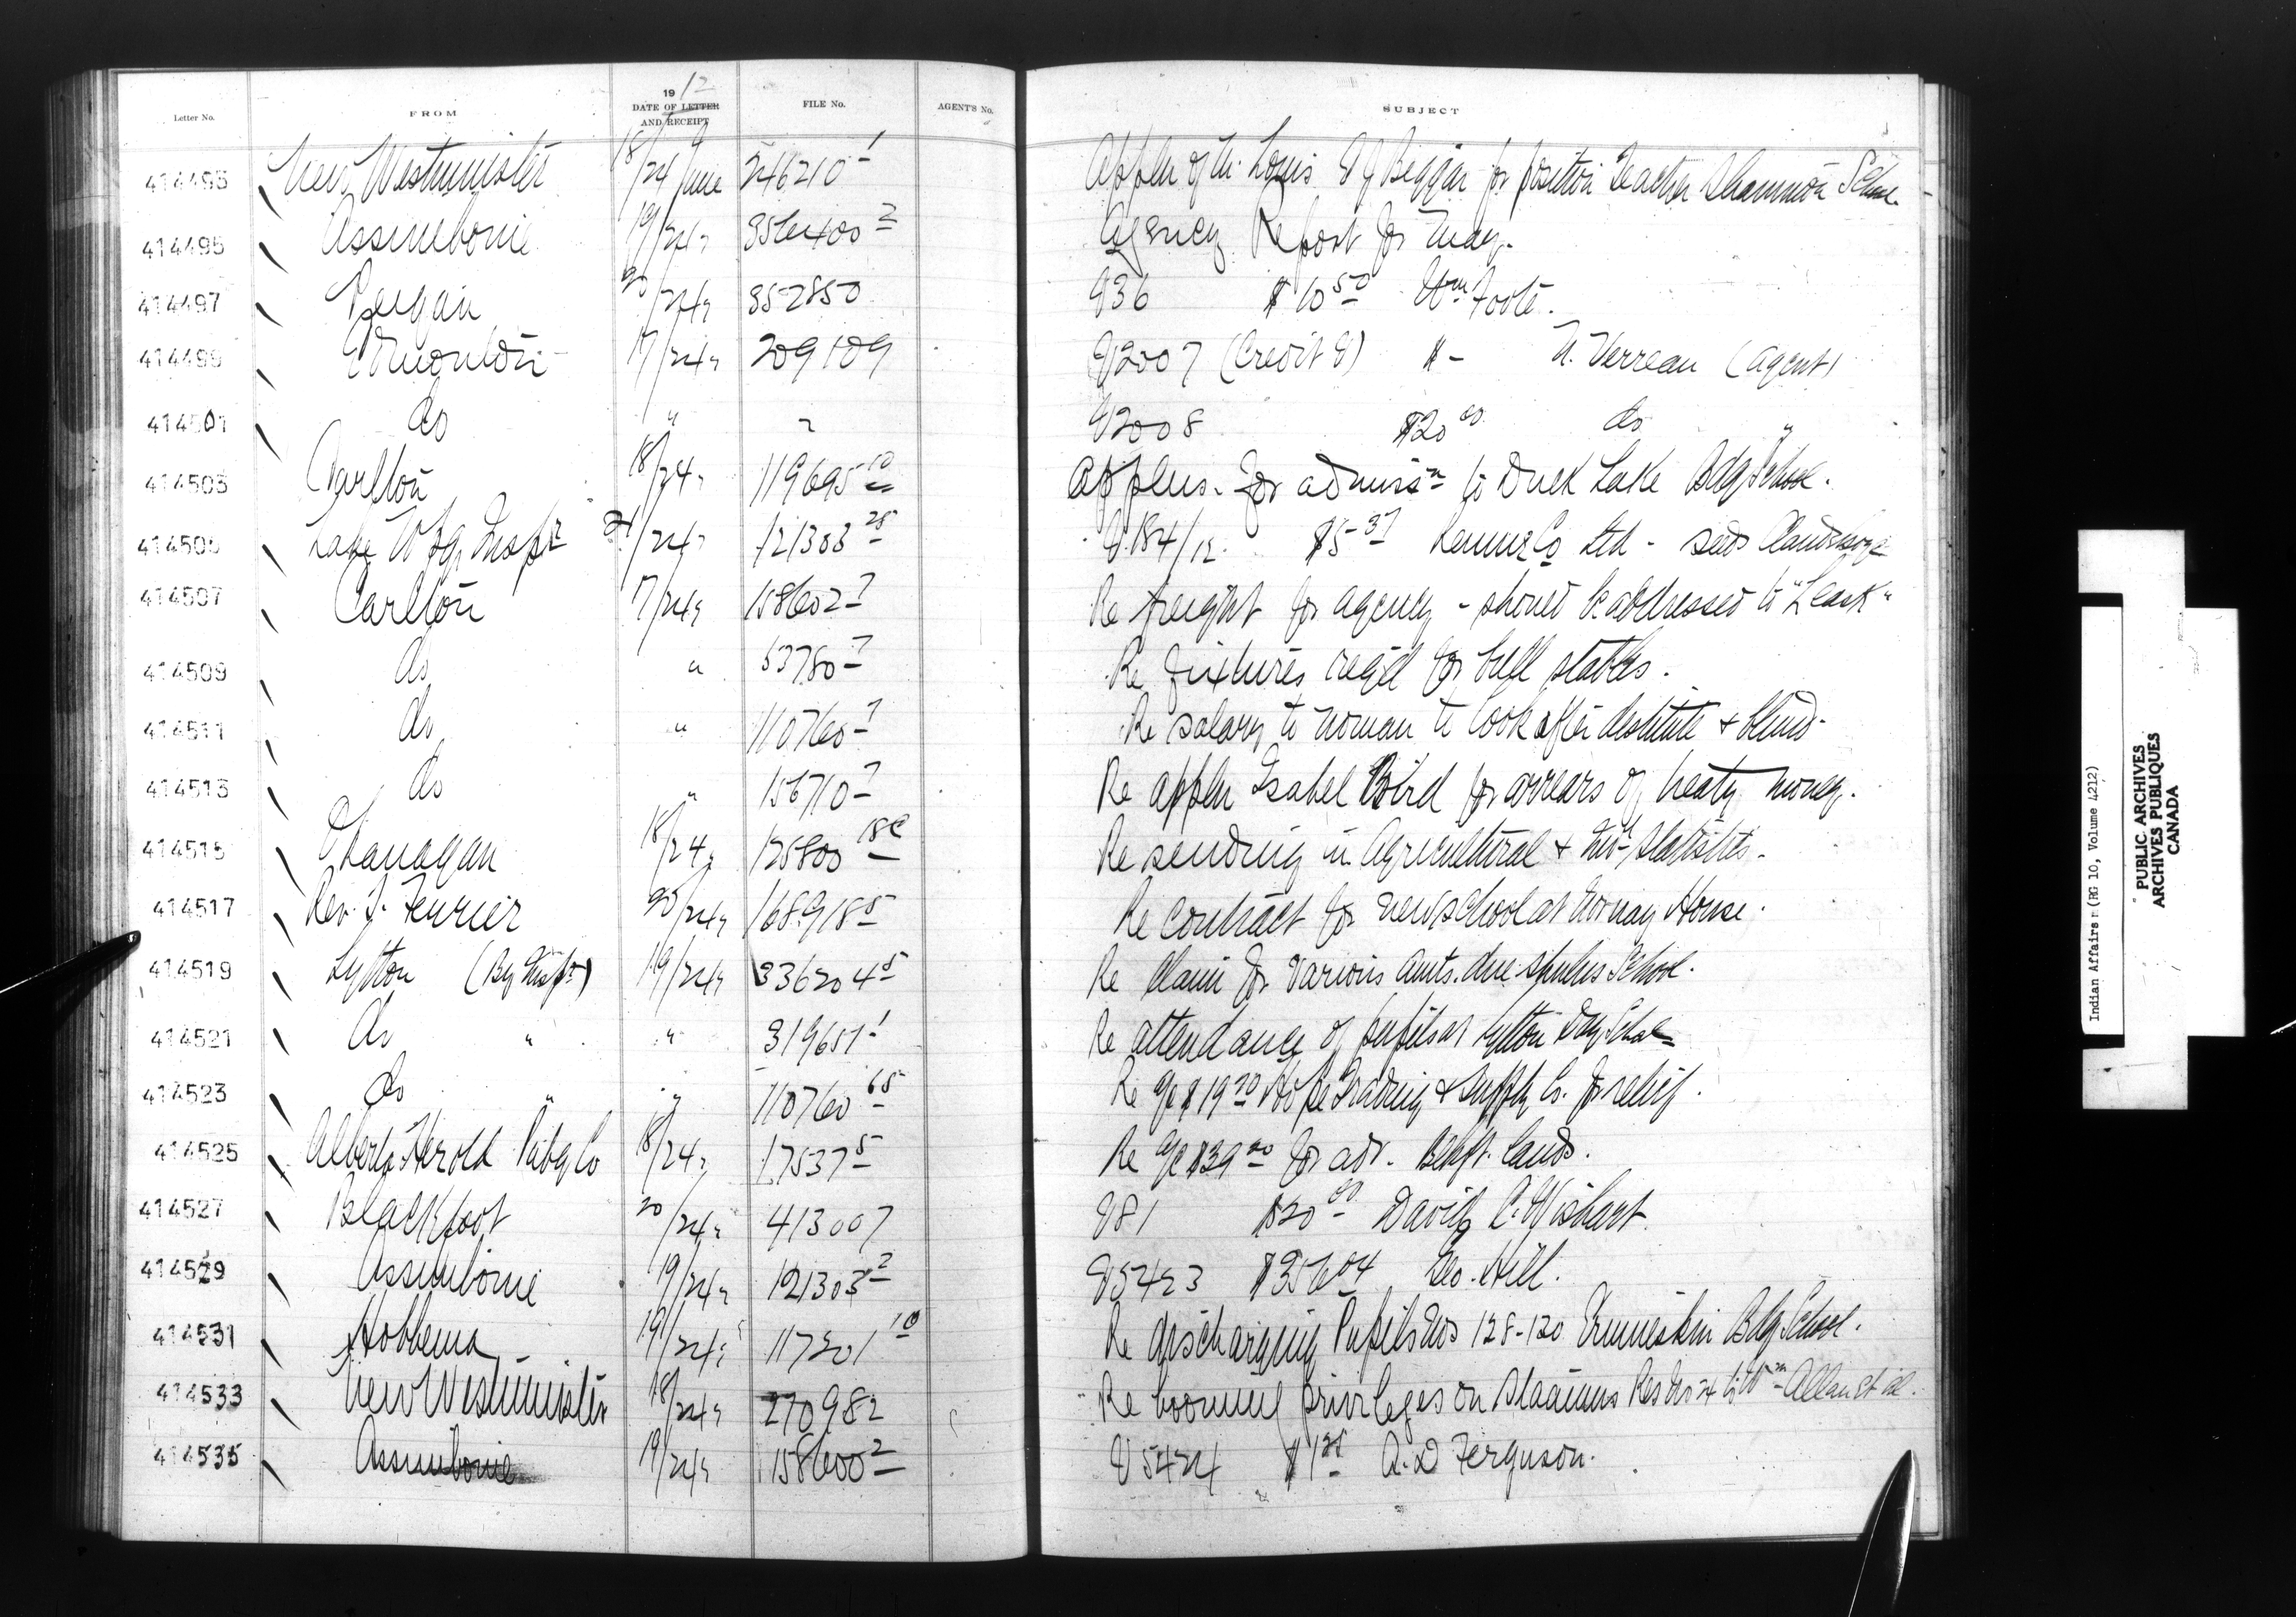 19 12
Letter No. FROM DATE OF LETTER AND RECEIPT FILE No. AGENT'S No. SUBJECT
414493 New Westminster 18/24 June 246210-1 Appln of Louis Beggar for position Teacher School
414495 Assiniboine 19/24 " 356400-2 Agency Report for May.
414497 Peigan 20/24 " 352850 V36 $10.50 Wm Foote.
414499 Edmonton 17/24 " 209109 V2007 (Credit V) $ - U. Verreau (Agent)
414501 do " " V2008 $20.00 do "
414503 Carlton 18/24 " 119695-10 Applns. for admissn to Duck Lake Bdg School.
414505 Lake Wpg Inspr 21/24 " 121303-25 V.184/12. $5.37 Co Ltd - seeds
414507 Carlton 17/24 " 158602-7 Re freight for agency - should be addressed to "Leask"
414509 do " 53780-7 Re fixtures reqd for bull stables.
414511 do " 110760-7 Re salary to woman to look after destitute & blind-
414513 do " 156710-7 Re appln Isabel Bird for arrears of treaty money.
414515 Okanagan 18/24 " 125800-18C Re sending in Agricultural & Indl Statistics-
414517 Rev. T. Ferrier 20/24 " 168918-5 Re contract for new school at Norway House.
414519 Lytton (By Inspr) 19/24 " 336204-5 Re claim for various amts. due School.
414521 do " " 319651-1 Re attendance of pupils at Lytton Day School
414523 do " " 110760-65 Re a/c $19.20 Hope Trading & Supply Co. for relief.
414525 Alberta Herold Pubg Co 18/24 " 17537-5 Re a/c $39.00 for adv. Blkft. lands.
414527 Blackfoot 20/24 " 413007 V81 $20.00 David C. Wishart.
414529 Assiniboine 19/24 " 121303-2 V5423 $356.04 Geo. Hill.
414531 Hobbema 19/24 " 117201-10 Re discharging Pupils Nos 128-130 Ermineskin Bdg School.
414533 New Westminster 18/24 " 270982 Re booming privileges on Res No 4 to Wm Allan et al.
414535 Assiniboine 19/24 " 158600-2 V5424 A.D Ferguson.
Indian Affairs (RG 10, Volume 4212)
PUBLIC ARCHIVES
ARCHIVES PUBLIQUES
CANADA